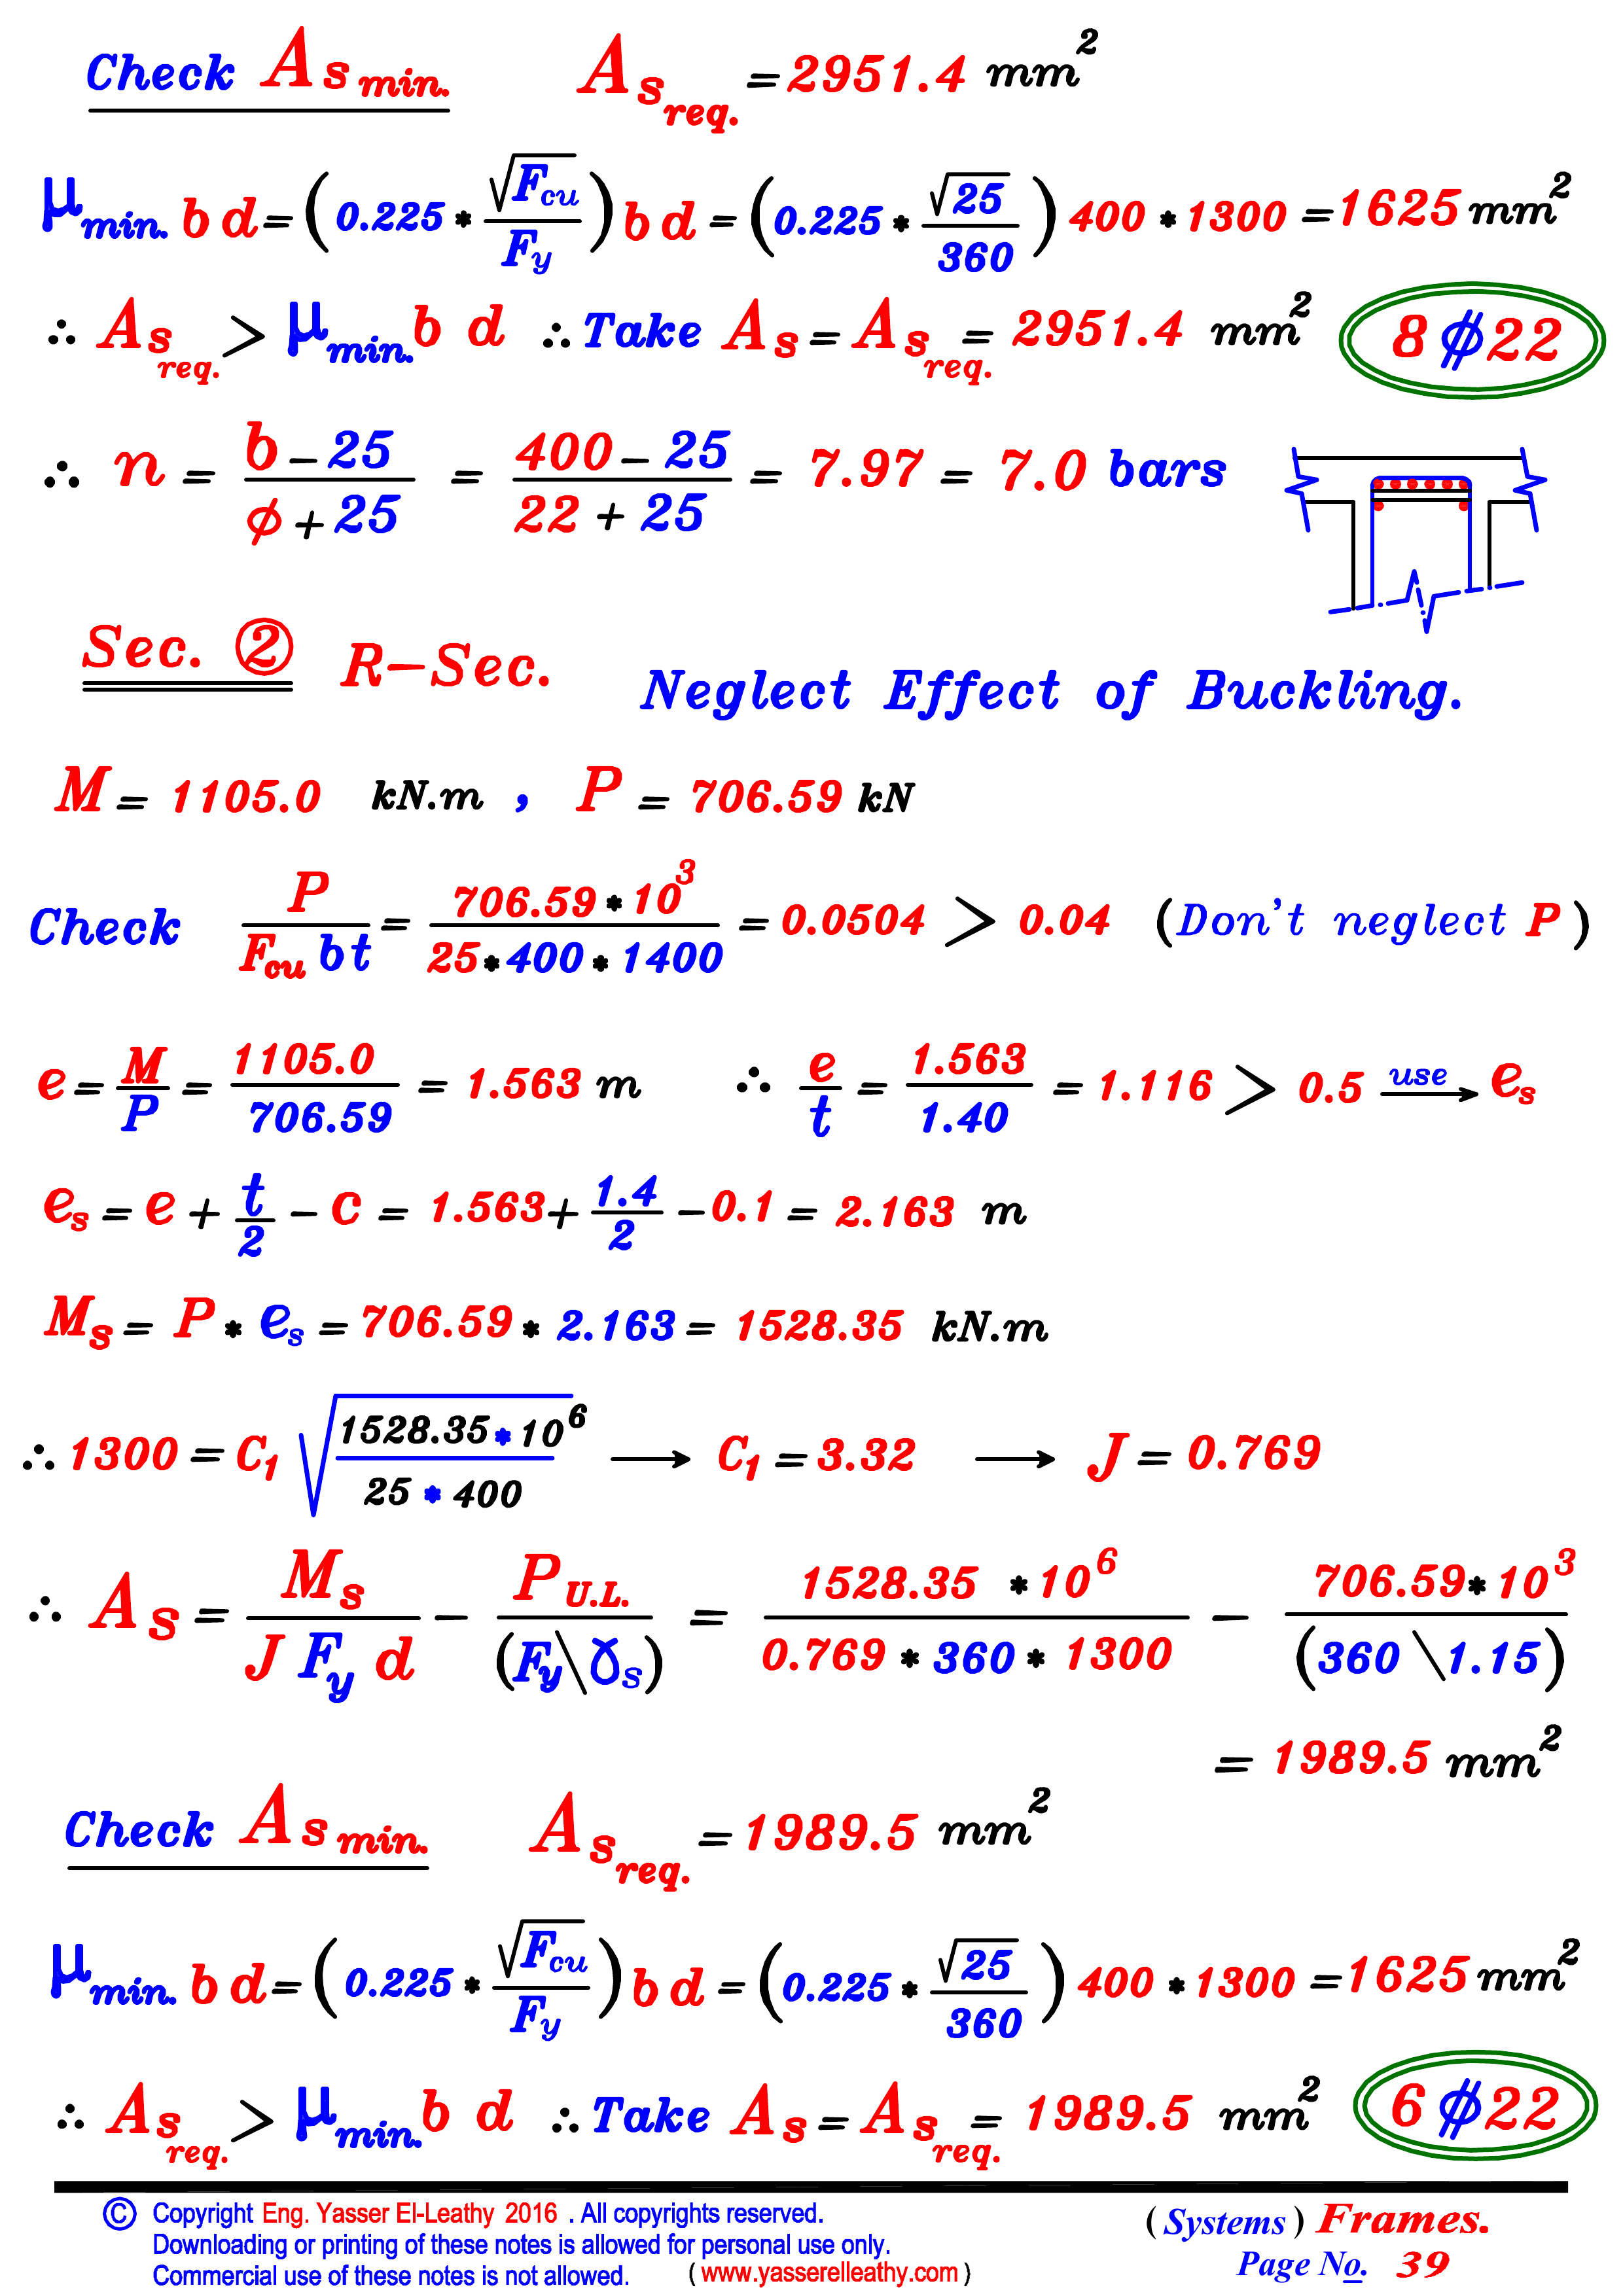 Check As min. As req. = 2951.4 mm²
μ min. b d = ( 0.225 * √Fcu / Fy ) b d = ( 0.225 * √25 / 360 ) 400 * 1300 = 1625 mm²
∴ As req. > μ min. b d ∴ Take As = As req. = 2951.4 mm² 8 ⌀ 22
∴ n = b - 25 / φ + 25 = 400 - 25 / 22 + 25 = 7.97 = 7.0 bars
Sec. ② R-Sec. Neglect Effect of Buckling.
M = 1105.0 kN.m , P = 706.59 kN
Check P / Fcu bt = 706.59 * 10³ / 25 * 400 * 1400 = 0.0504 > 0.04 (Don't neglect P)
e = M / P = 1105.0 / 706.59 = 1.563 m ∴ e / t = 1.563 / 1.40 = 1.116 > 0.5 use → es
es = e + t / 2 - c = 1.563 + 1.4 / 2 - 0.1 = 2.163 m
Ms = P * es = 706.59 * 2.163 = 1528.35 kN.m
∴ 1300 = C₁ √ 1528.35 * 10⁶ / 25 * 400 → C₁ = 3.32 → J = 0.769
∴ As = Ms / J Fy d - P U.L. / (Fy \ ɣs) = 1528.35 * 10⁶ / 0.769 * 360 * 1300 - 706.59 * 10³ / (360 \ 1.15)
= 1989.5 mm²
Check As min. As req. = 1989.5 mm²
μ min. b d = ( 0.225 * √Fcu / Fy ) b d = ( 0.225 * √25 / 360 ) 400 * 1300 = 1625 mm²
∴ As req. > μ min. b d ∴ Take As = As req. = 1989.5 mm² 6 ⌀ 22
© Copyright Eng. Yasser El-Leathy 2016 . All copyrights reserved.
Downloading or printing of these notes is allowed for personal use only.
Commercial use of these notes is not allowed. ( www.yasserelleathy.com )
(Systems) Frames.
Page No. 39